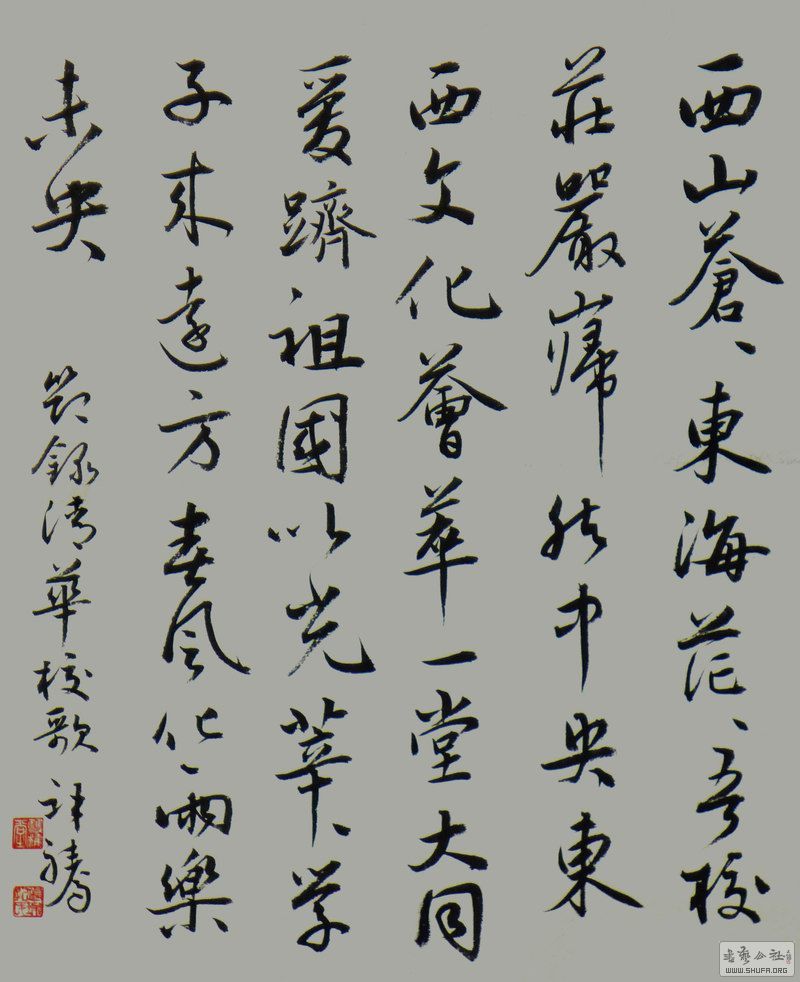 西山蒼、東海茫、吾校
莊嚴巋然中央東
西文化薈萃一堂大同
爰躋祖國以光莘、学
子来遠方春風化雨樂
未央
節録清華校歌
書藝公社
WWW.SHUFA.ORG